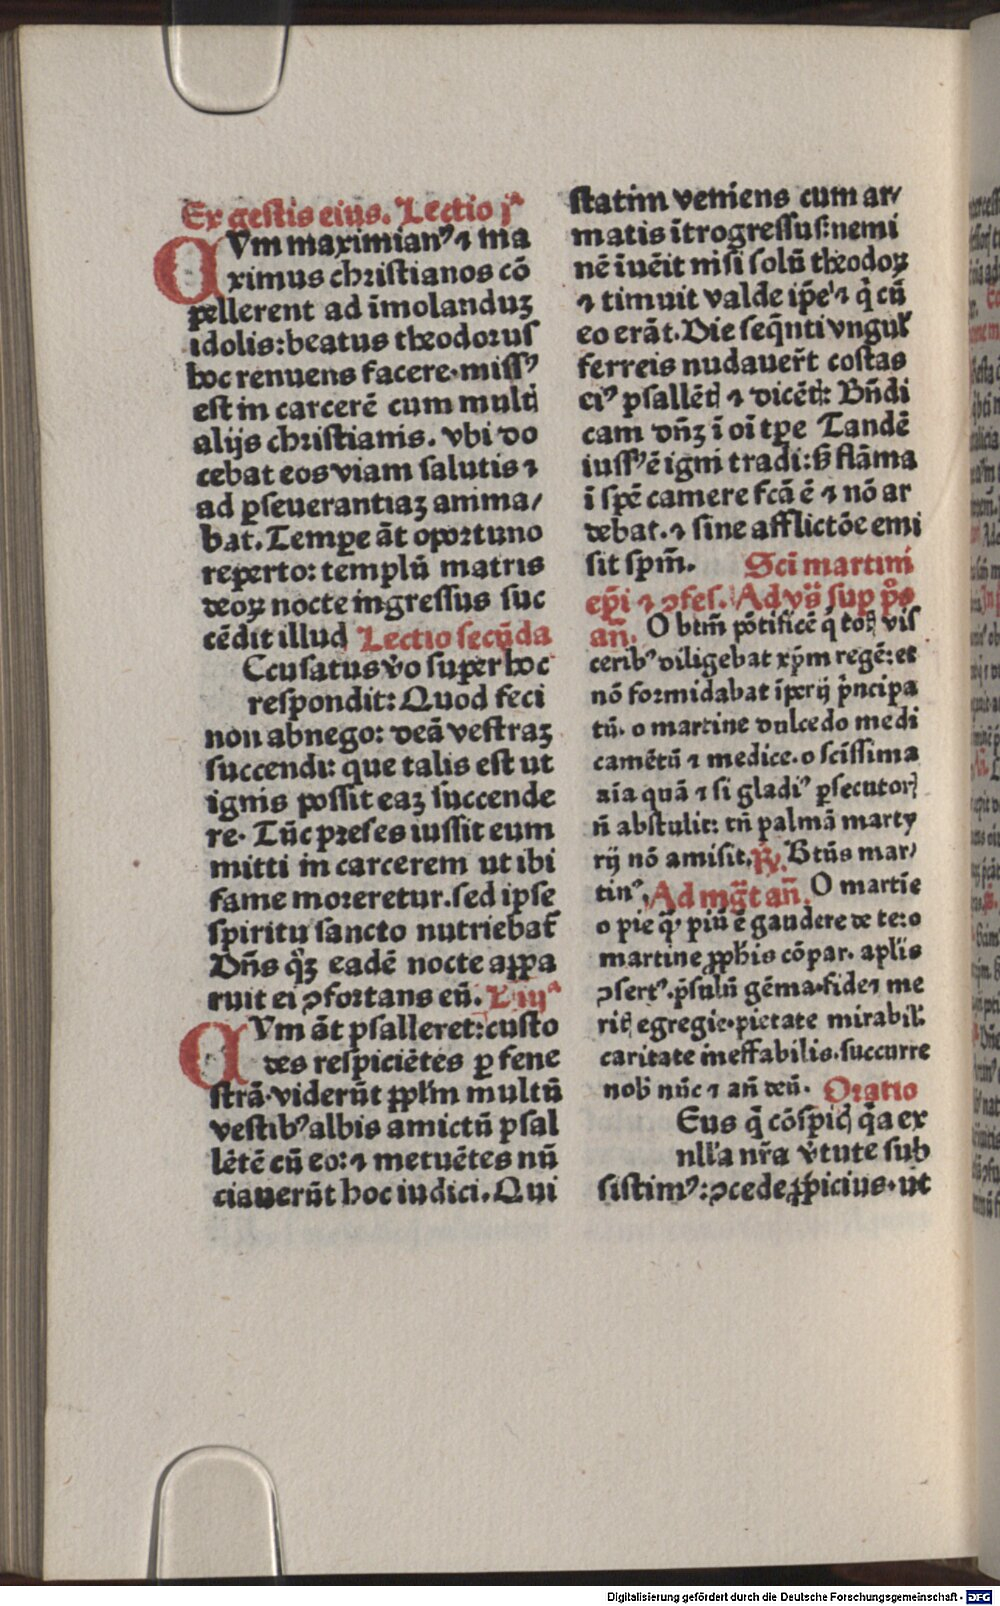 Ex gestis eius. Lectio jª
CVm maximianꝰ ⁊ ma
ximus christianos cō
pellerent ad īmolanduꝫ
idolis: beatus theodorus
hoc renuens facere. missꝰ
est in carcerē cum multꝭ
alijs christianis. vbi do
cebat eos viam salutis ⁊
ad ꝑseuerantiaꝫ anima/
bat. Tempe āt oportuno
reperto: templū matris
deoꝝ nocte ingressus suc
cēdit illud Lectio secūda
Ccusatus v̓o super hoc
respondit: Quod feci
non abnego: deā vestraꝫ
succendi: que talis est ut
ignis possit eaꝫ succende
re. Tūc preses iussit eum
mitti in carcerem ut ibi
fame moreretur. sed ipse
spiritu sancto nutriebat̄
Dn̄s qꝫ eadē nocte appa
ruit ei ꝯfortans eū. L iijª
CVm āt psalleret: custo
des respiciētes ꝑ fene
strā. viderūt ppl̄m multū
vestibꝰ albis amictū psal
lētē cū eo: ⁊ metuētes nū
ciauerūt hoc iudici. Qui
statim veniens cum ar/
matis ītrogressus: nemi
nē īuēit nisi solū theodoꝝ
⁊ timuit valde ip̄e ⁊ q̇ cū
eo erāt. Die seq̄nti vngul̓
ferreis nudauer̄t costas
eiꝰ psallētꝭ ⁊ dicētꝭ: Bn̄di
cam dn̄ꝫ ī oī tꝑe Tandē
iussꝰ ē igni tradi: ß flāma
ī spē camere fcā ē ⁊ nō ar
debat. ⁊ sine afflictōe emi
sit spm̄. Sci martini
ep̄i ⁊ ꝯfes. Ad vs̄ sup p̄s
an̄. O btm̄ pōtificē q̇ totꝭ vis
ceribꝰ diligebat xp̄m regē: et
nō formidabat īperij pͥncipa
tū. o martine dulcedo medi
camētū ⁊ medice. o scīssima
aīa quā ⁊ si gladiꝰ ꝑsecutorꝭ
n̄ abstulit: tn̄ palmā marty
rij nō amisit. ℟. Btūs mar/
tinꝰ. Ad mḡt an̄. O martīe
o pie q̄ꝫ piū ē gaudere de te: o
martine ꝓphīs cōpar. apl̄is
ꝯsertꝰ. p̄sulū gēma. fide ⁊ me
ritꝭ egregie. pietate mirabil̓.
caritate ineffabilis. succurre
nobꝭ nūc ⁊ an̄ deū. Oratio
Eus q̄ cōspicꝭ q̄a ex
nll̓a nr̄a v̓tute sub
sistimꝰ: ꝯcede ꝓpicius. ut
Digitalisierung gefördert durch die Deutsche Forschungsgemeinschaft - DFG